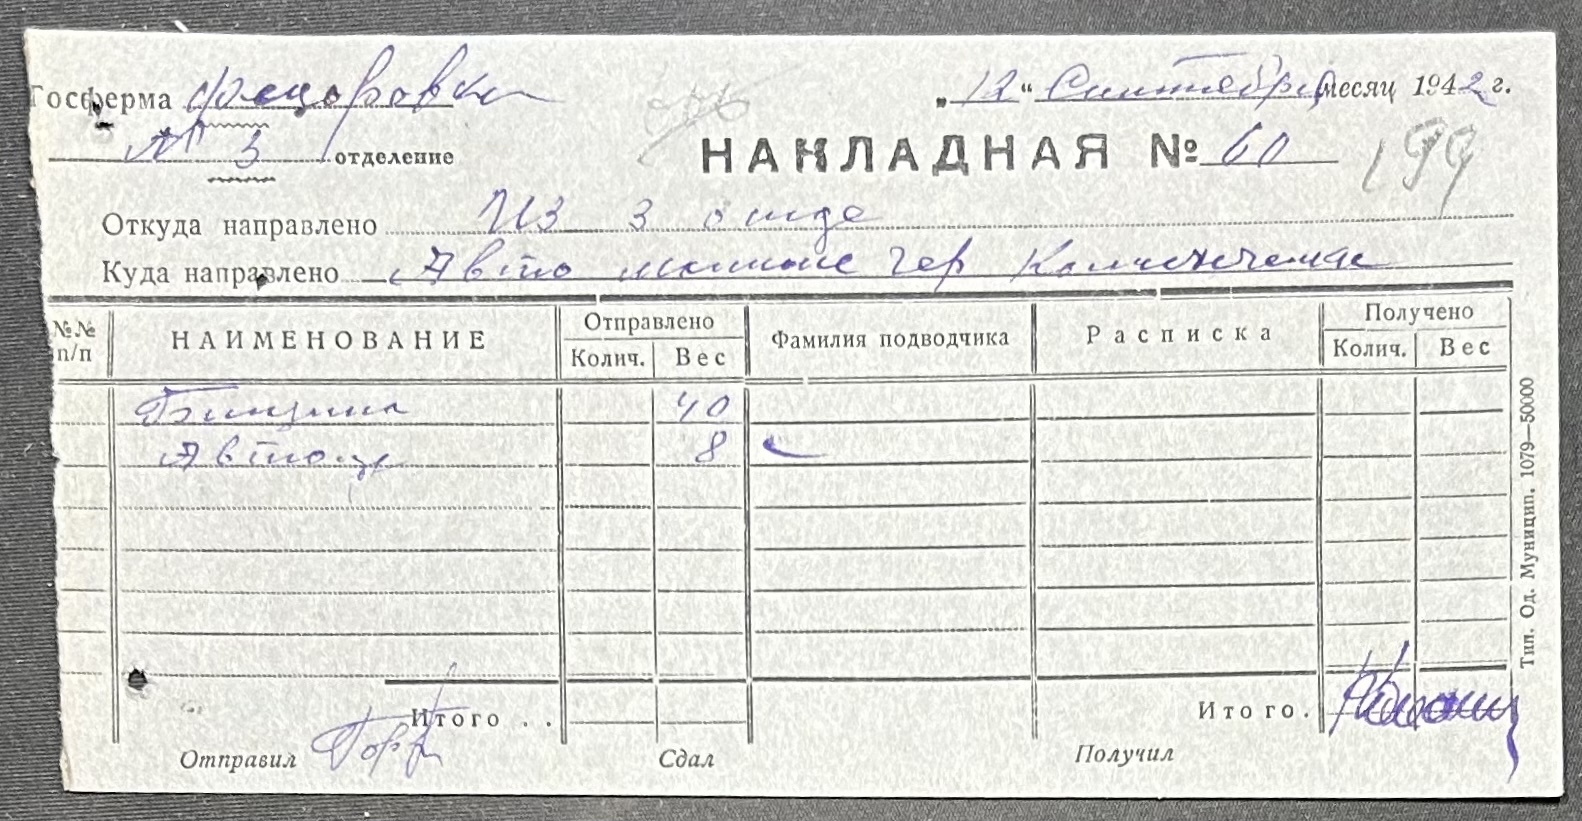 Госферма Федоровка „12“ Сентября месяц 1942 г.
№ 3 отделение
НАКЛАДНАЯ № 60 199
Откуда направлено Из 3 отде
Куда направлено Авто машине чер
№№ п/п НАИМЕНОВАНИЕ Отправлено Фамилия подводчика Расписка Получено
Колич. Вес Колич. Вес
Бинзина 40
Автола 8
Итого . . Итого .
Отправил Сдал Получил
Тип. Од. Муницип. 1079—50000